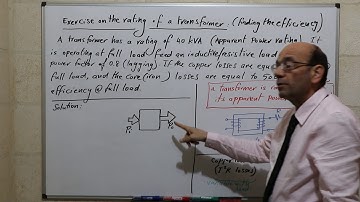 Exercise on the rating of a transformer. (finding the efficiency)
A transformer has a rating of 40 kVA (Apparent Power rating). It
is operating at full load feeding an inductive/resistive load
power factor of 0.8 (lagging). If the copper losses are equal
full load, and the core (iron) losses are equal to 500
efficiency @ full load.
Solution:
a Transformer is
its apparent power
Copper
(I²R losses)